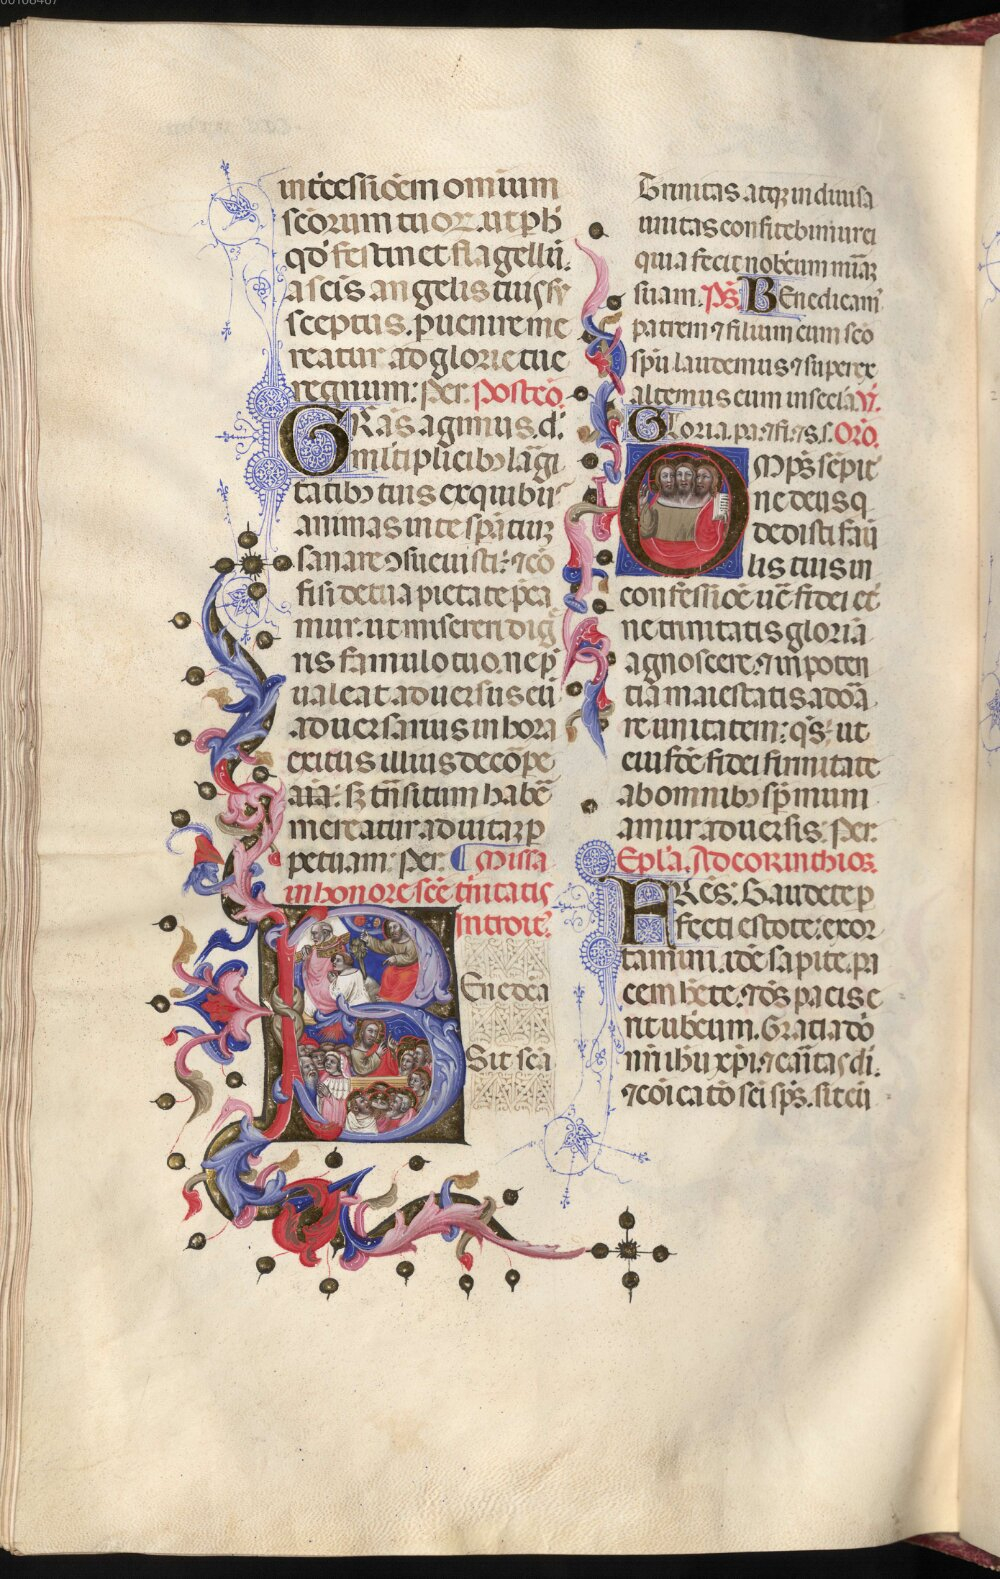 intercessionem omnium
scorum tuor. ut ph
qd festin et flagellu.
a scis angelis tuis sy
sceptus. puenire me
reatur ad glorie tue
regnum: Per. Postco.
GRAs agimus. d.
multiplicib largi
tatib tuis ex quibus
animas in te spantiuz
sanare 9sueuisti: 7 co
fisi de tua pietate pca
mur. ut misereri dig
ris famulo tuo. ne p
ualeat aduersus eu
aduersarius in hora
exitus illius de corpe
aia: sz tnsitum habe
mereatur ad uitaz p
petuam: Per. Missa
in honore scē trinitatis
Introit.
Enedca
Sit sca
Trinitas. atqz indiuisa
unitas confitebimur ei
quia fecit nobcum miaz
suam. Ps. BEnedicam
patrem 7 filium cum sco
spu laudemus 7 superex
altemus eum in secla. V.
Gloria. pa. 7 fi. 7 s. s. Oro.
OMps sepit
ne deus q
dedisti fau
lis tuis in
confessioe uē fidei et
ne trinitatis gloria
agnoscere. 7 in poten
tia maiestatis adoa
re unitatem: qs. ut
eiusde fidei firmitate
ab omnib sp mum
amur aduersis. Per.
Epla. Ad corinthios.
FRes: Gaudete p
fecti estote: exor
tamini. ide sapite. pa
cem hete. 7 ds pacis e
rit ubcum. Gracia dō
nri ihu xpi. 7 caritas di.
7 coicato sci sps. sit cu